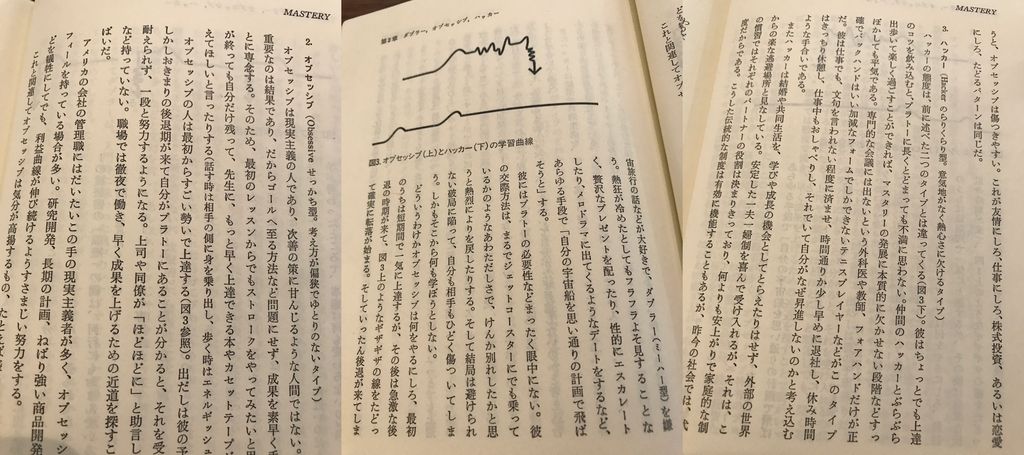 MASTERY
2. オブセッシブ(Obsessive せっかち型。考え方が偏狭でゆとりのないタイプ)
オブセッシブは現実主義の人であり、次善の策に甘んじるような人間ではない。
重要なのは結果であり、だからゴールへ至る方法など問題にせず、成果を素早く手
に専念する。そのため、最初のレッスンからからでもストロークをやってみたいと思
が終っても自分だけ残って、先生に、もっと早く上達できる本やカセットテープ
えてほしいと言ったりする(話す時は相手の側に身を乗り出し、歩く時はエネルギッシュ
オブセッシブの人は最初からすごい勢いで上達する(図3参照)。出だしは彼の予
しかしおきまりの後退期が来て自分がプラトーにあることが分かると、それを受
耐えられず、一段と努力するようになる。上司や同僚が「ほどほどに」と助言し
など持っていない。職場では徹夜で働き、早く成果を上げるための近道を探すこ
ばいだ。
アメリカの会社の管理職にはだいたいこの手の現実主義者が多く、オブセッシ
フィールを持っている場合が多い。研究開発、長期の計画、ねばり強い商品開発
どを犠牲にしてでも、利益曲線が伸び続けるようすさまじい努力をする。
これと関連してオブセッシブは気分が高揚するもの、
第2章 ダブラー、オブセッシブ、ハッカー
図3. オブセッシブ(上)とハッカー(下)の学習曲線
宙旅行の話などが大好きで、ダブラー(ミーハー型)を嫌
う。熱狂が冷めたとしてもフラフラよそ見することな
く、贅沢なプレゼントを配ったり、性的にエスカレート
したり、メロドラマに出てくるようなデートをするなど、
あらゆる手段で「自分の宇宙船を思い通りの計画で飛ば
そうと」する。
彼にはプラトーの必要性などまったく眼中にない。彼
の交際方法は、まるでジェットコースターにでも乗って
いるかのようなあわただしさで、けんか別れしたかと思
うと熱烈によりを戻したりする。そして結局は避けられ
ない破局に陥って、自分も相手もひどく傷ついてしま
う。しかもそこから何も学ぼうとしない。
どういうわけかオブセッシブは何をやるにしろ、最初
のうちは短期間で一気に上達するが、その後は急激な後
退の時期が来て、図3上のようなギザギザの線をたどっ
て確実に転落が始まる。そしていったん後退が来てしま
これと関連してオブ
MASTERY
うと、オブセッシブは傷つきやすい。これが友情にしろ、仕事にしろ、株式投資、あるいは恋愛
にしろ、たどるパターンは同じだ。
3. ハッカー(Hacker のらりくらり型。意気地がなく熱心さに欠けるタイプ)
ハッカーの態度は、前に述べた二つのタイプとは違ってくる(図3下)。彼はちょっとでも上達
のコツを飲み込むと、プラトーに長くとどまっても不満に思わない。仲間のハッカーとぶらぶら
出歩いて楽しく過ごすことができれば、マスタリーの発展に本質的に欠かせない段階などすっ
ぽかしても平気である。専門的な会議には出ないという外科医や教師、フォアハンドだけが正
確でバックハンドはいい加減なフォームでしかできないテニスプレイヤーなどがこのタイプ
だ。彼は仕事でも、文句を言われない程度に済ませ、時間通りか少し早めに退社し、休み時間
はきっちり休憩し、仕事中もおしゃべりし、それでいて自分がなぜ昇進しないのかと考え込む
ような手合いである。
またハッカーは結婚や共同生活を、学びや成長の機会としてとらえたりはせず、外部の世界
からの楽な逃避場所と見なしている。安定した一夫一婦制を喜んで受け入れるが、それは、こ
の慣習ではそれぞれのパートナーの役割は決まりきっており、何よりも安上がりで家庭的な制
度だからである。こうした伝統的な制度は有効に機能することもあるが、昨今の社会では、